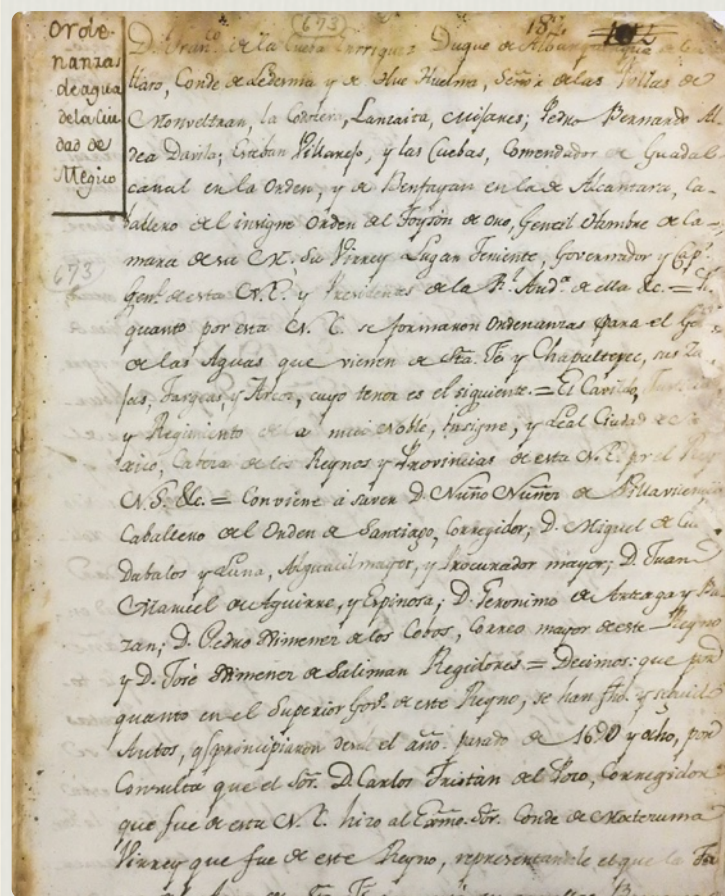 Orde-
nanzas
de agua
de la Ciu
dad de
Mégico
673
18
D. Franco. de la Cueva Enrriquez Duque de Alburquerque
llaro, Conde de Ledesma y de Huelma, Señor de las Villas de
Monveltran, la Codosera, Lanzaita, Mijares; Pedro Bernardo Al
dea Davila; Esteban Villarejo, y las Cuebas, Comendador de Guadal
canal en la Orden, y de Benfayan en la de Alcantara, Ca-
ballero del insigne Orden del Toyson de oro, Gentil Hombre de la Ca-
mara de su M. Su Virrey Lugar Teniente, Governador y Cap.
Genl. de esta N. E. y Presidente de la Rl. Auda. de ella &c. =
673
quanto por esta N. C. se formaron Ordenanzas para el
de las Aguas que vienen de Sta. Fe y Chapultepec, sus
Targeas, y Arcos, cuyo tenor es el siguiente. = El Cavildo,
y Regimiento de la mui Noble, insigne, y Leal Ciudad de
xico, Cabeza de los Reynos y Provincias de esta N. E. por el Rey
N. S. &c. = Conviene á saver D. Nuño Nuñez de Villavicencio
Caballero del Orden de Santiago, Corregidor; D. Miguel de
Dabalos y Luna, Alguacil mayor, y Procurador mayor; D. Juan
Manuel de Aguirre, y Espinosa; D. Geronimo de Arteaga y Ba-
zan; D. Pedro Ximenez de los Cobos, Correo mayor de este Reyno
y D. José Ximenez de Saliman Regidores = Decimos: que por
quanto en el Superior Govo. de este Reyno, se han fho. y seguido
Autos, q. principiaron desde el año pasado de 1690 y ocho, por
Consulta que el Sor. D. Carlos Tristan del Pozo, Corregidor
que fue de esta N. C. hizo al Exmo. Sor. Conde de Moctezuma
Virrey que fue de este Reyno, representandole el que la